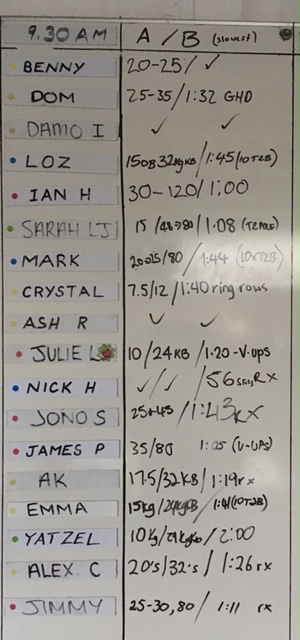 9.30 AM A / B (slowest)
BENNY 20-25/ ✓
DOM 25-35/1:32 GHD
DAMO I ✓ ✓
LOZ 32kgKB/1:45/(10T2B)
IAN H 30-120/1:00
SARAH LJ 15 / 1.08
MARK /80 / 1:44 (10xT2B)
CRYSTAL 7.5/12/1:40 ring rows
ASH R ✓ ✓
JULIE L 10/24KB/1.20-V-ups
NICK H ✓/✓ /56 sec, RX
JONO S 25+45 / 1:43 RX
JAMES P 35/80 (V-UPS)
AK 17.5/32KB/1:19 rx
EMMA 15kg /24kgKB/ (10T2B)
YATZEL 10kg/ / 2:00
ALEX. C 20's/32's / 1:26 rx
JIMMY 25-30,80 / 1:11 rx